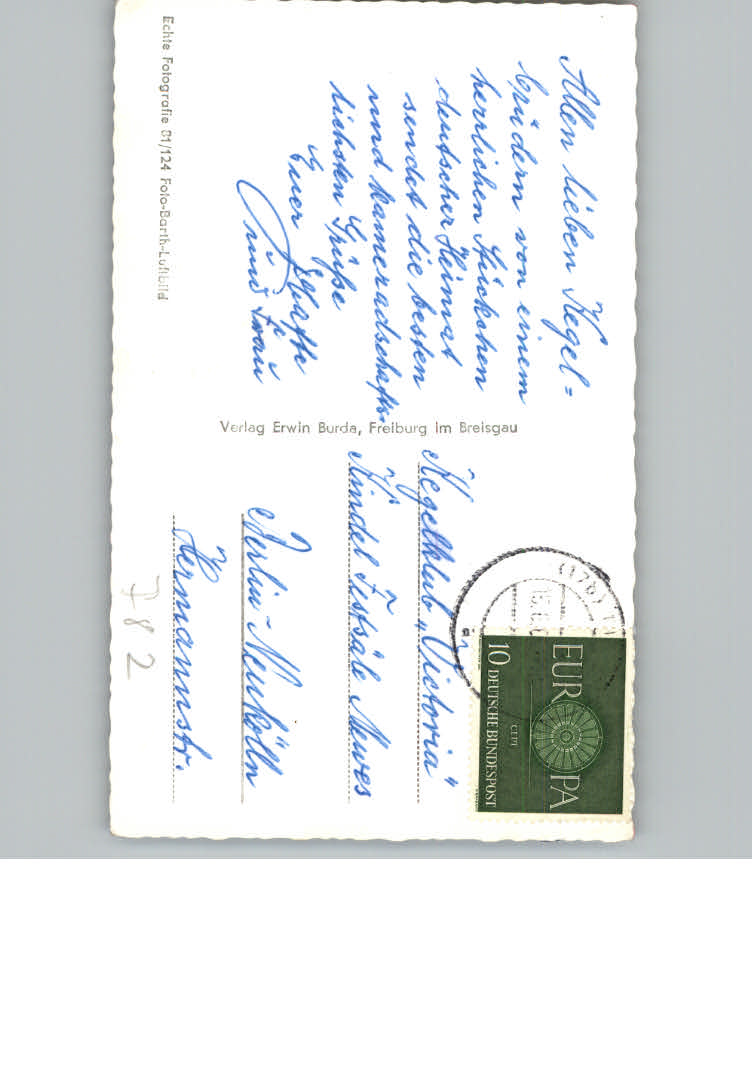 Allen lieben Kegel=
brüdern von einem
herrlichen Stückchen
deutscher Heimat
sendet die besten
und kameradschaft-
lichsten Grüße
Euer
und Frau
Echte Fotografie 81/124 Foto-Barth-Luftbild
Verlag Erwin Burda, Freiburg im Breisgau
Kegelklub „Victoria"
Kindel Festsäle Mewes
Berlin-Neukölln
Hermannstr.
(17b)
EUROPA
CEPT
10 DEUTSCHE BUNDESPOST
782